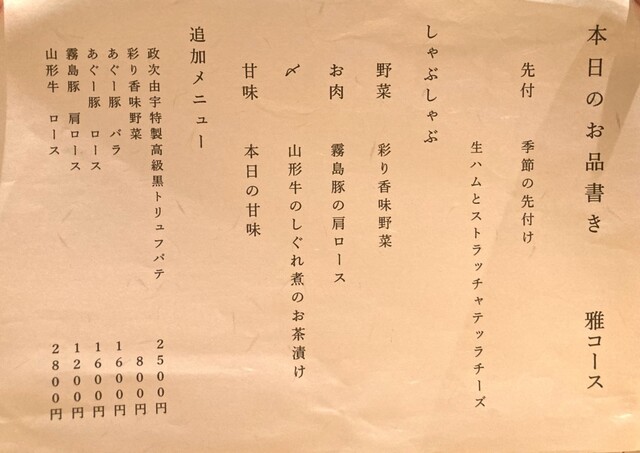 本日のお品書き 雅コース
先付 季節の先付け
生ハムとストラッチャテッラチーズ
しゃぶしゃぶ
野菜 彩り香味野菜
お肉 霧島豚の肩ロース
〆 山形牛のしぐれ煮のお茶漬け
甘味 本日の甘味
追加メニュー
政次由宇特製高級黒トリュフバテ 2500円
彩り香味野菜 800円
あぐー豚 バラ 1600円
あぐー豚 ロース 1600円
霧島豚 肩ロース 1200円
山形牛 ロース 2800円